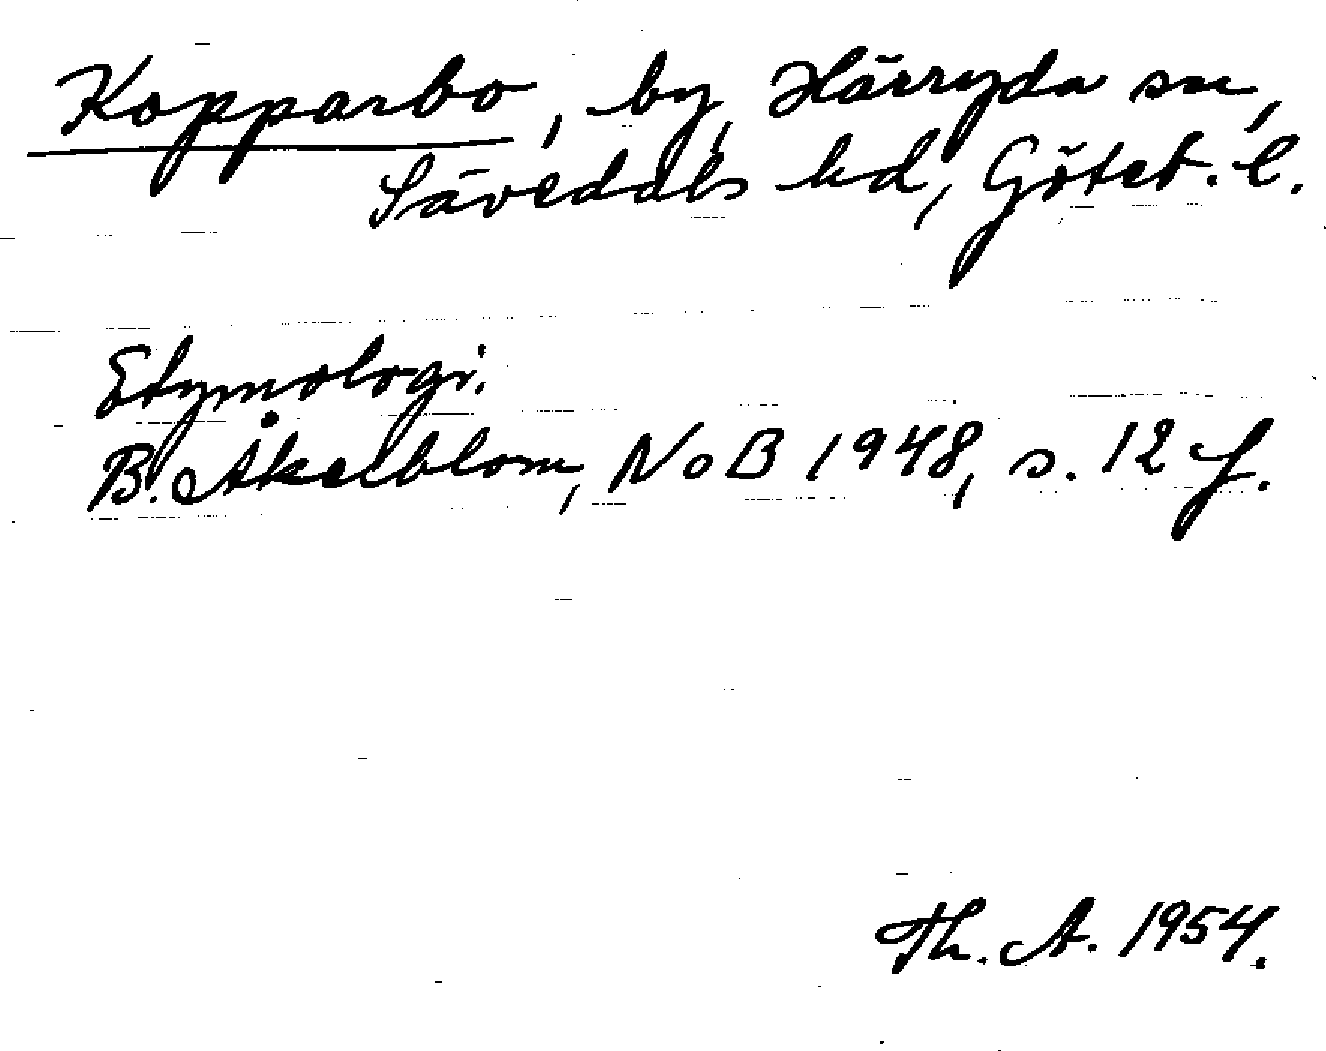 Kopparbo, by, Härryda sn,
Sävedals hd, Göteb. l.
Etymologi.
B. Åkerblom, NoB 1948, s. 12 f.
Th. A. 1954.